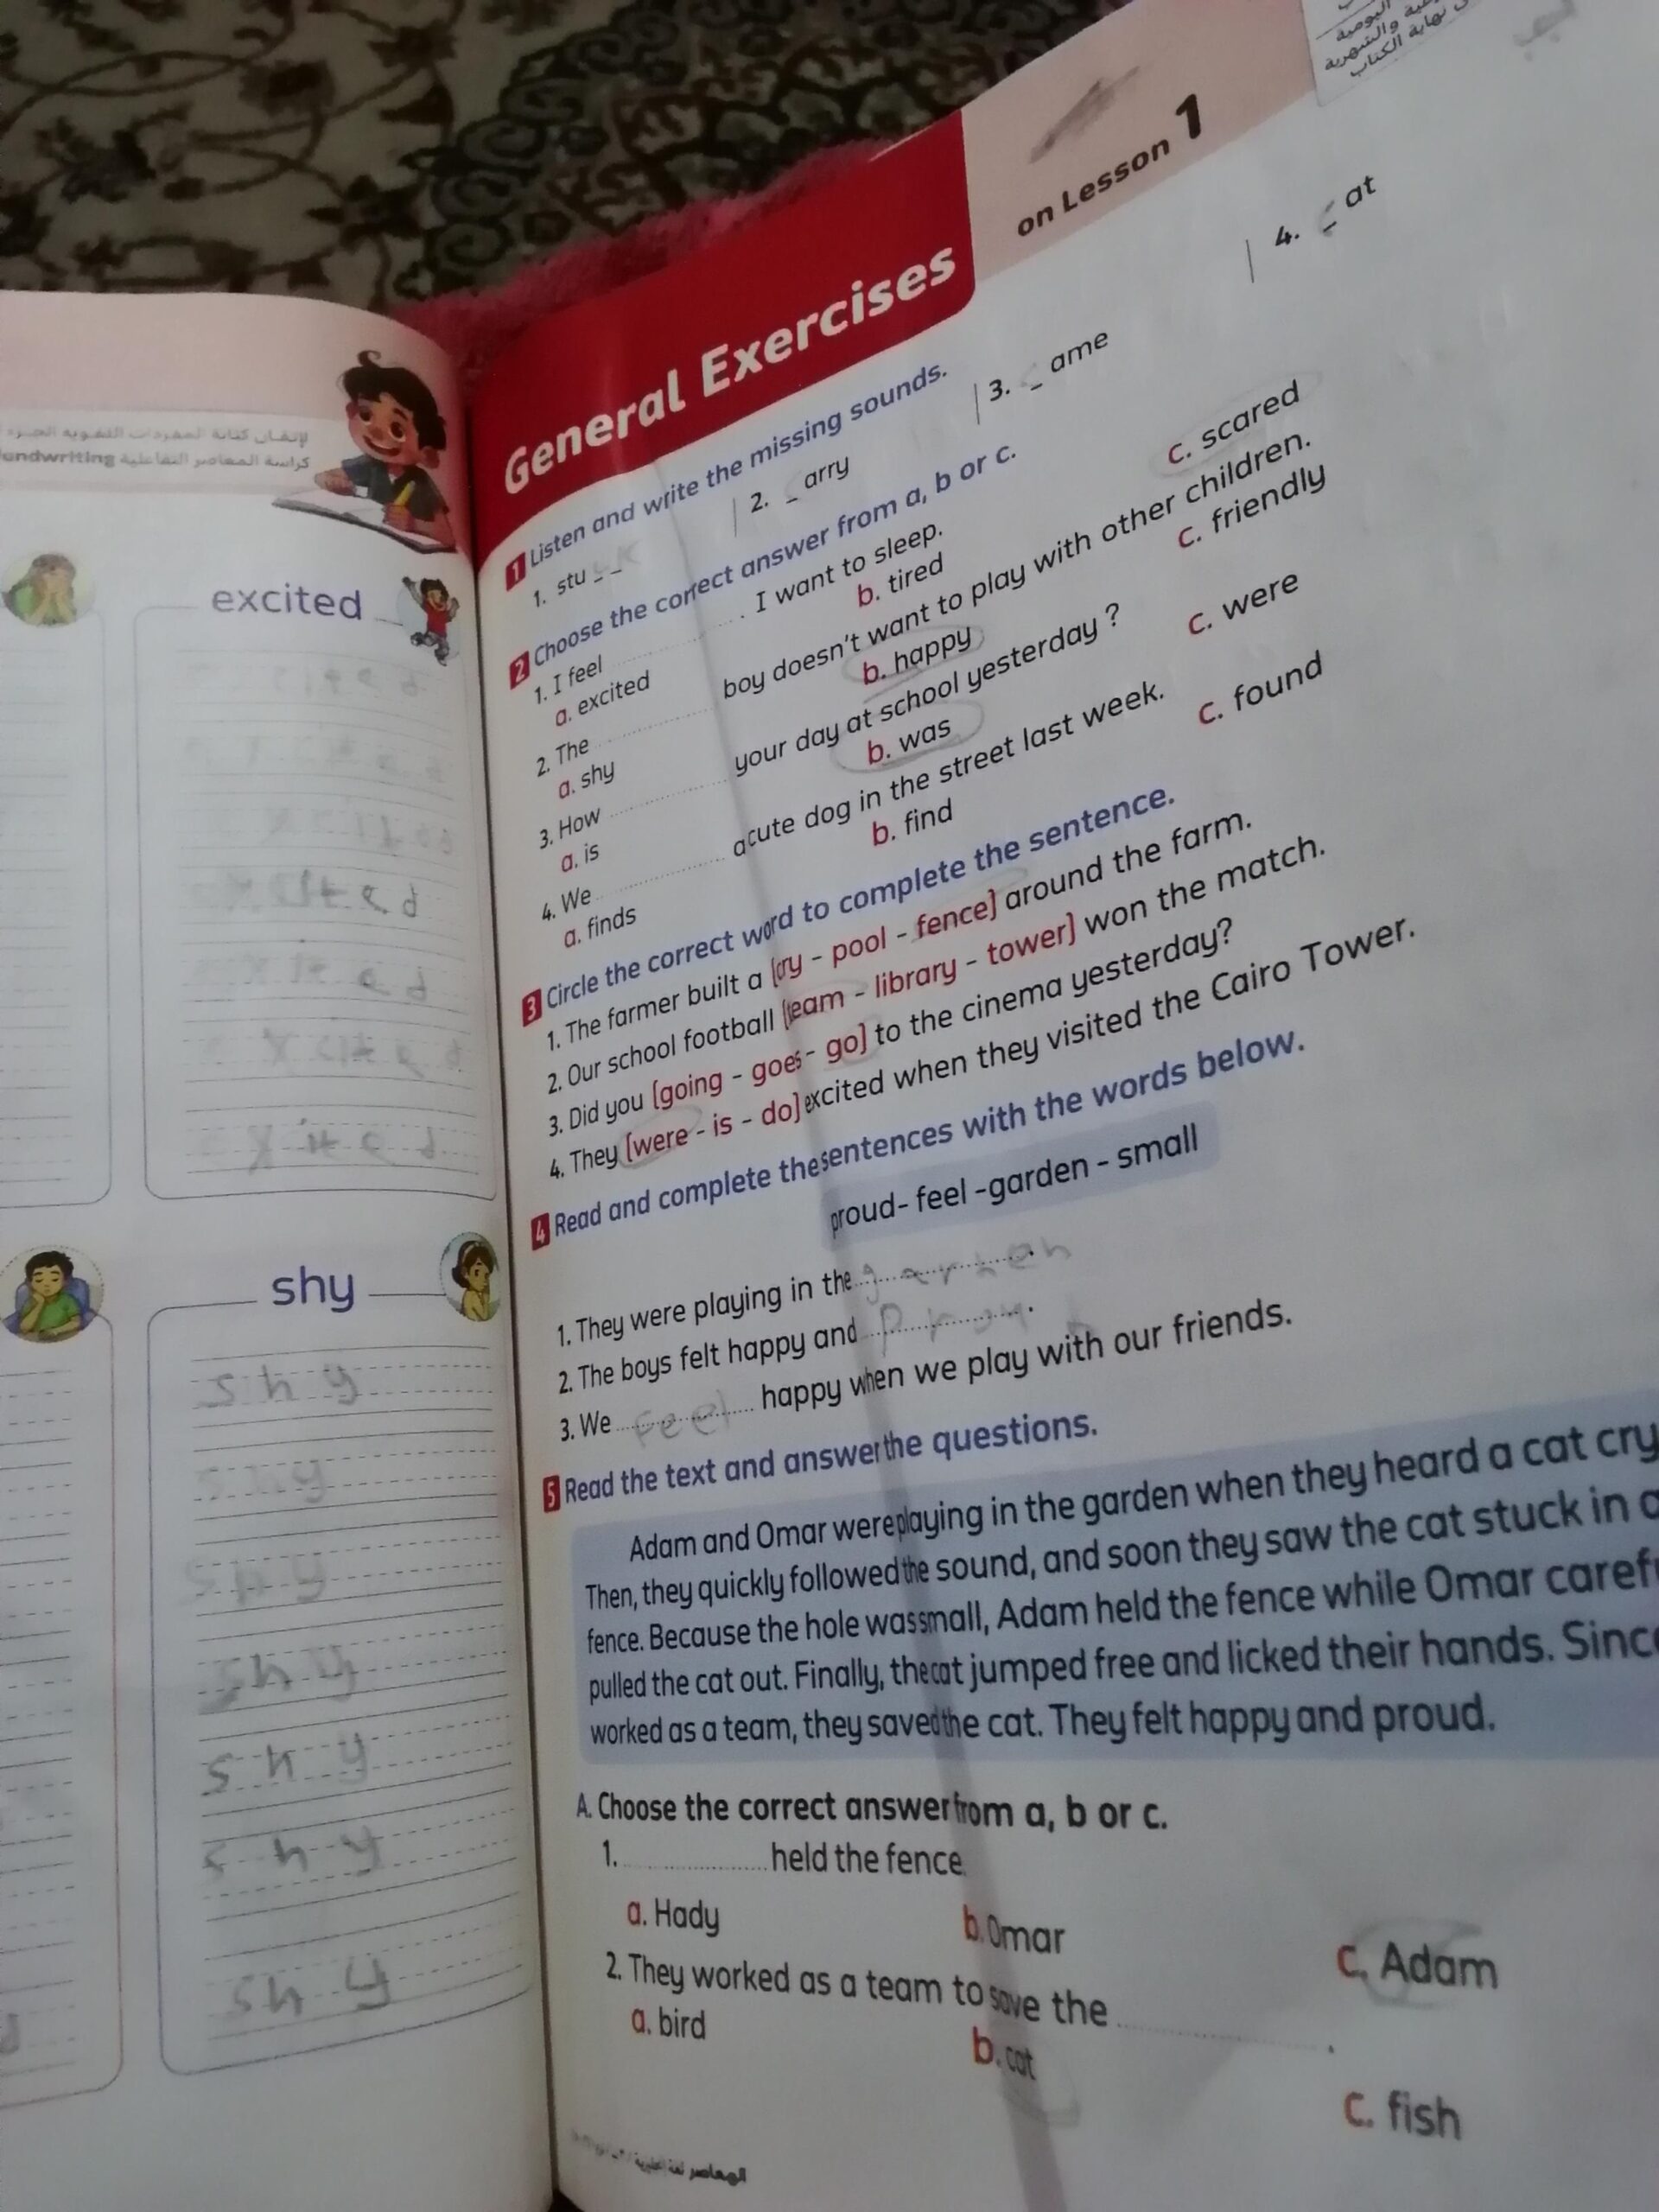 excited
shy
s h y
s h y
s h y
s h y
s h y
s h y
sh y
General Exercises
on Lesson 1
1 Listen and write the missing sounds.
1. stu _ _
2. _ arry
3. _ ame
4. _ at
2 Choose the correct answer from a, b or c.
1. I feel .......... . I want to sleep.
a. excited b. tired c. scared
2. The .......... boy doesn't want to play with other children.
a. shy b. happy c. friendly
3. How .......... your day at school yesterday ?
a. is b. was c. were
4. We .......... a cute dog in the street last week.
a. finds b. find c. found
3 Circle the correct word to complete the sentence.
1. The farmer built a (cry - pool - fence) around the farm.
2. Our school football (team - library - tower) won the match.
3. Did you (going - goes - go) to the cinema yesterday?
4. They (were - is - do) excited when they visited the Cairo Tower.
4 Read and complete the sentences with the words below.
proud - feel - garden - small
1. They were playing in the ..........
2. The boys felt happy and .......... .
3. We feel happy when we play with our friends.
5 Read the text and answer the questions.
Adam and Omar were playing in the garden when they heard a cat cry
Then, they quickly followed the sound, and soon they saw the cat stuck in
fence. Because the hole was small, Adam held the fence while Omar
pulled the cat out. Finally, the cat jumped free and licked their hands.
worked as a team, they saved the cat. They felt happy and proud.
A. Choose the correct answer from a, b or c.
1. .......... held the fence
a. Hady b. Omar c. Adam
2. They worked as a team to save the .......... .
a. bird b. cat c. fish